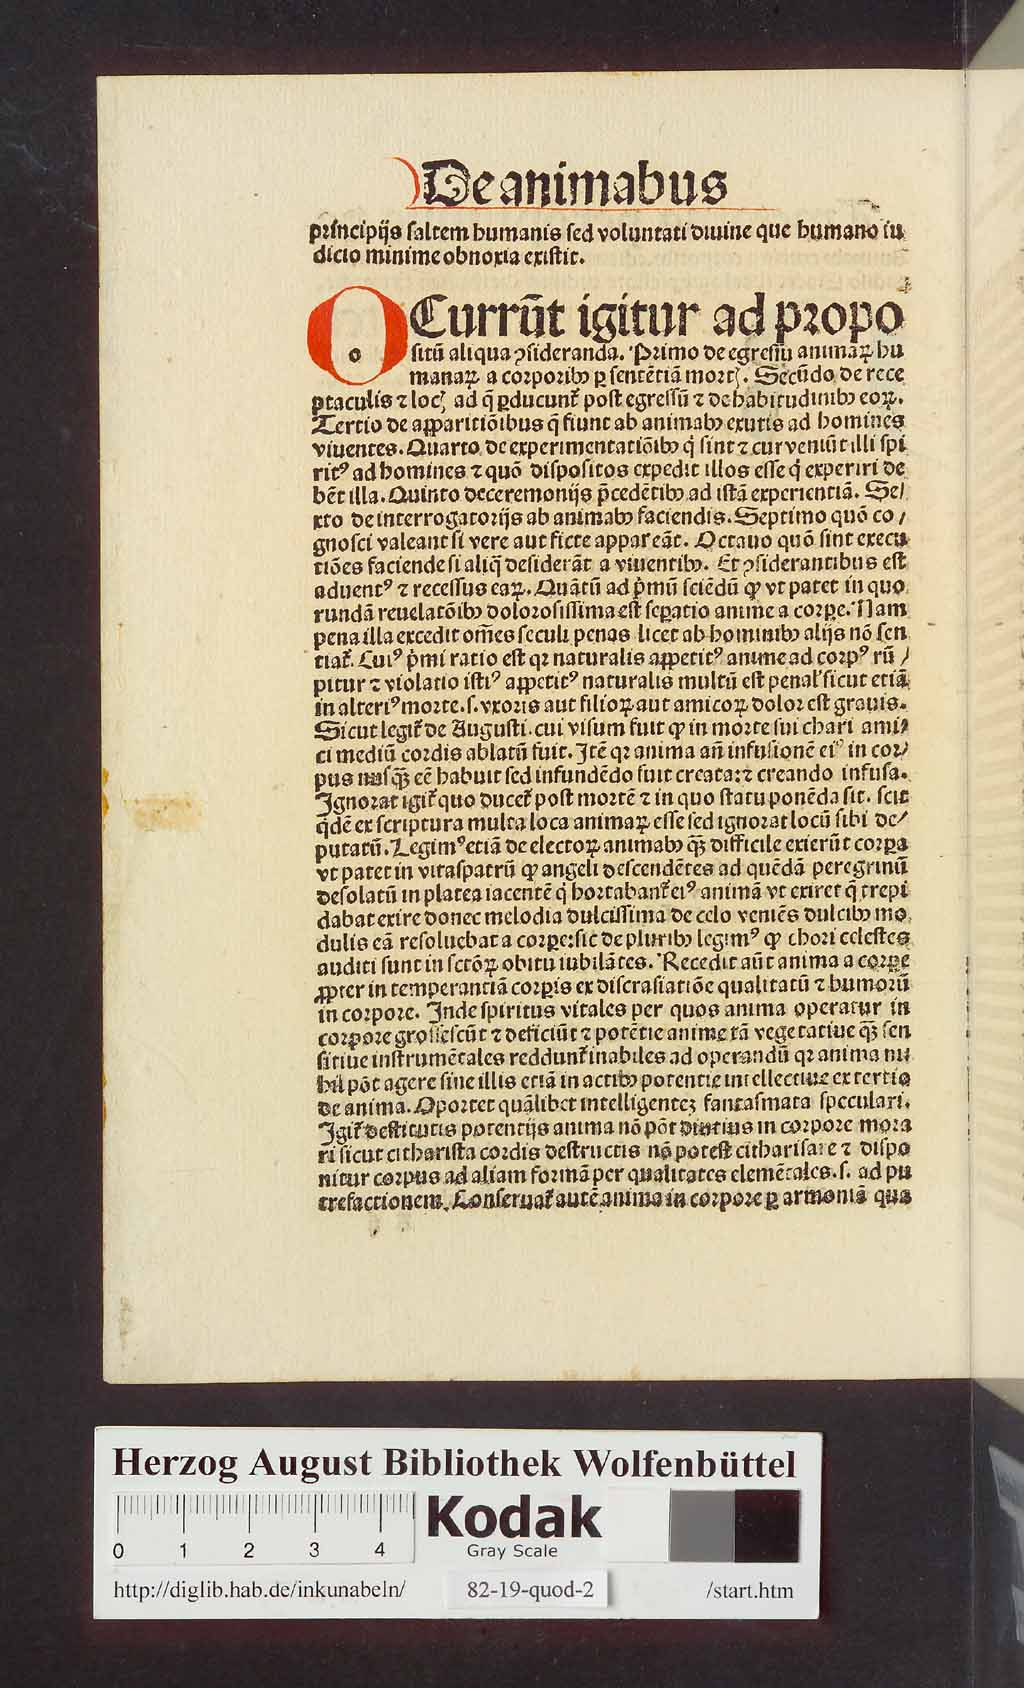 De animabus
principijs saltem humanis sed voluntati diuine que humano iu
dicio minime obnoxia existit.
OCurrūt igitur ad propo
sitū aliqua ꝯsideranda. Primo de egressu animaꝝ hu
manaꝝ a corporibꝰ ꝑ sentētiā mortꝭ. Secūdo de rece
ptaculis ⁊ locꝭ ad q̄ ꝑducunt᷑ post egressū ⁊ de habitudinibꝰ eoꝝ.
Tertio de apparitiōibus q̄ fiunt ab animabꝰ exutis ad homines
viuentes. Quarto de experimentatiōibꝰ q̇ sint ⁊ cur veniūt illi spi
ritꝰ ad homines ⁊ quō dispositos expedit illos esse q̇ experiri de
bēt illa. Quinto de ceremonijs p̄cedētibꝰ ad istā experientiā. Se/
xto de interrogatorijs ab animabꝰ faciendis. Septimo quō co/
gnosci valeant si vere aut ficte appareāt. Octauo quō sint execu
tiōes faciende si aliq̄ desiderāt a viuentibꝰ. Et ꝯsiderantibus est
aduentꝰ ⁊ recessus eaꝝ. Quātū ad ṗmū sciēdū ꝙ vt patet in quo
rundā reuelatōibꝰ dolorosissima est seꝑatio anime a corꝑe. Nam
pena illa excedit om̄es seculi penas licet ab hominibꝰ alijs nō sen
tiat᷑. Cuiꝰ ṗmi ratio est qꝛ naturalis appetitꝰ anime ad corpꝰ rū/
pitur ⁊ violatio istiꝰ appetitꝰ naturalis multū est penal' sicut etiā
in alteriꝰ morte. s. vxoris aut filioꝝ aut amicoꝝ dolor est grauis.
Sicut legit᷑ de Augusti. cui visum fuit ꝙ in morte sui chari ami/
ci mediū cordis ablatū fuit. Itē qꝛ anima an̄ infusionē eiꝰ in cor/
pus nusqꝫ eē habuit sed infundēdo fuit creata: ⁊ creando infusa.
Ignorat igit᷑ quo ducet᷑ post mortē ⁊ in quo statu ponēda sit. scit
q̇dē ex scriptura multa loca animaꝝ esse sed ignorat locū sibi de/
putatū. Legimꝰ etiā de electoꝝ animabꝰ qꝫ difficile exierūt corꝑa
vt patet in vitaspatrū ꝙ angeli descendētes ad quēdā peregrinū
desolatū in platea iacentē q̇ hortabant᷑ eiꝰ animā vt exiret q̄ trepi
dabat exire donec melodia dulcissima de celo veniēs dulcibꝰ mo
dulis eā resoluebat a corꝑe: sic de pluribꝰ legimꝰ ꝙ chori celestes
auditi sunt in sctōꝝ obitu iubilātes. Recedit aūt anima a corꝑe
ꝓpter in temperantiā corꝑis ex discrasiatiōe qualitatū ⁊ humorū
in corpore. Inde spiritus vitales per quos anima operatur in
corpore grossescūt ⁊ deficiūt ⁊ potētie anime tā vegetatiue qꝫ sen
sitiue instrumētales reddunt᷑ inabiles ad operandū qꝛ anima ni
hil pōt agere sine illis etiā in actibꝰ potentie intellectiue ex tertio
de anima. Oportet quālibet intelligenteꝫ fantasmata speculari.
Igit᷑ destitutis potentijs anima nō pōt diutius in corpore mora
ri sicut citharista cordis destructis nō potest citharisare ⁊ dispo
nitur corpus ad aliam formā per qualitates elemētales. s. ad pu
trefactionem. Conseruat᷑ autē anima in corpore ꝑ armoniā qua
Herzog August Bibliothek Wolfenbüttel
0 1 2 3 4
Kodak
Gray Scale
http://diglib.hab.de/inkunabeln/ 82-19-quod-2 /start.htm